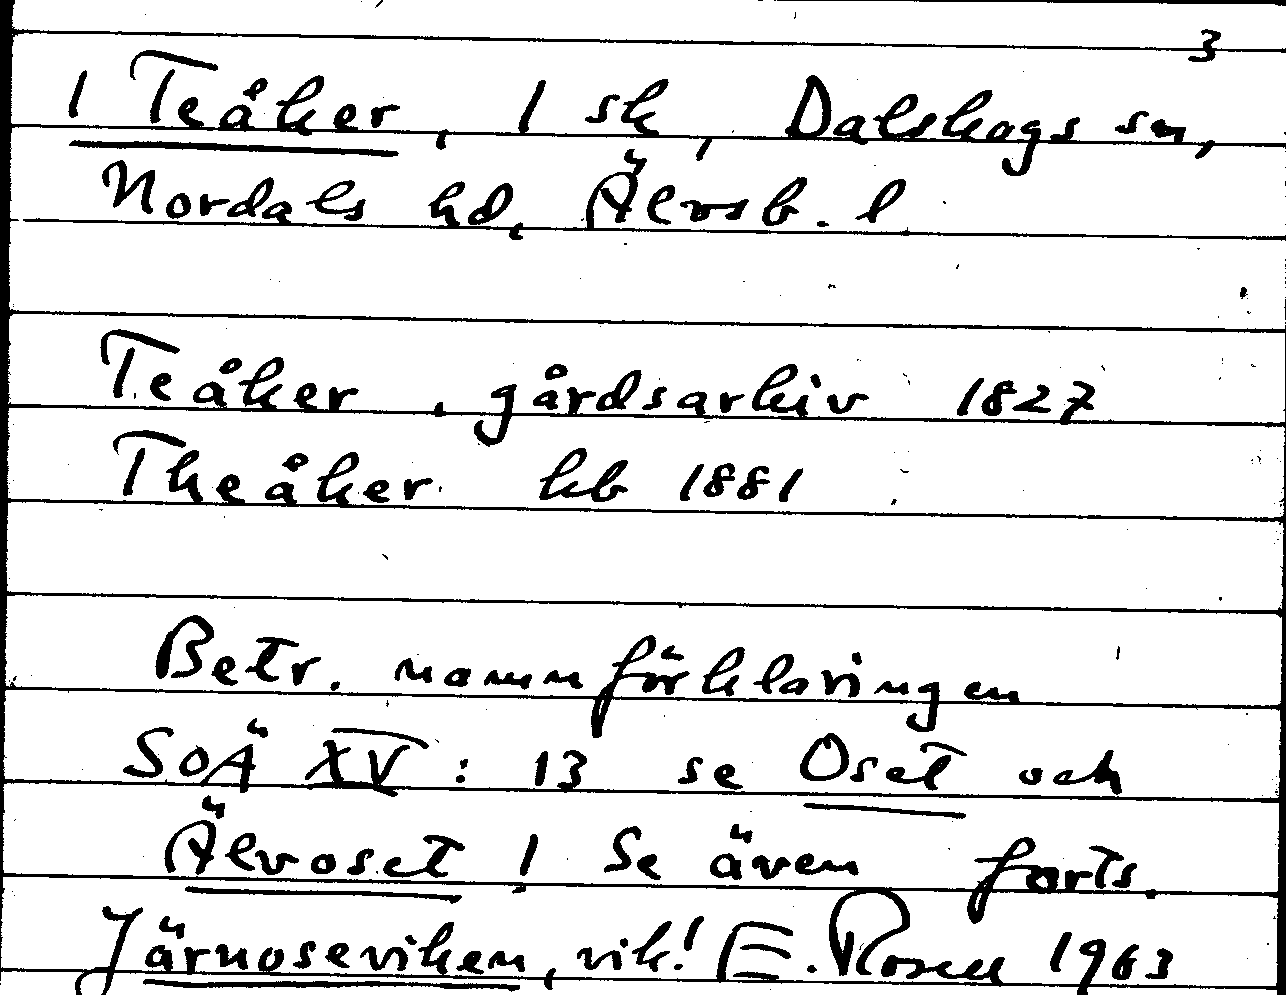 3
1 Teåker, 1 sk, Dalskogs sn,
Nordals hd, Älvsb. l.
Teåker, gårdsarkiv 1827
Theåker kb 1881
Betr. namnförklaringen
SOÄ XV : 13 se Oset och
Älvoset! Se även forts.
Järnoseviken, vik! E. Rosell 1963